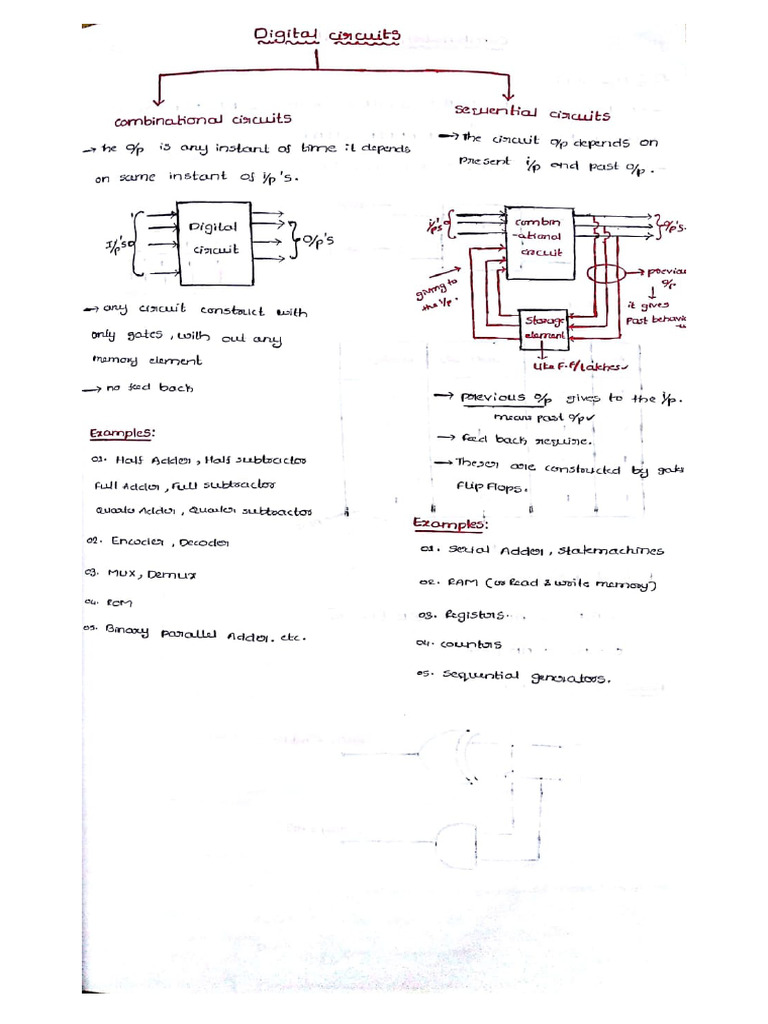 Digital circuits
combinational circuits
→ the o/p is any instant of time it depends
on same instant of i/p's.
I/p's
Digital
circuit
O/p's
→ any circuit construct with
only gates, with out any
memory element
→ no feed back
Examples:
01. Half Adder, Half subtractor
Full Adder, Full subtractor
Quarter Adder, Quarter subtractor
02. Encoder, Decoder
03. MUX, Demux
04. ROM
05. Binary parallel Adder. etc.
sequential circuits
→ the circuit o/p depends on
present i/p and past o/p.
i/p's
combin
-ational
circuit
O/p's.
giving to
the i/p.
→ previous
o/p.
it gives
Past behavio
storage
element
like F.F/Latches
→ previous o/p gives to the i/p.
means past o/p
→ feed back require.
→ are constructed by gate
flip flops.
Examples:
01. serial Adder, statemachines
02. RAM (or Read & write memory)
03. Registers.
04. counters
05. sequential generators.